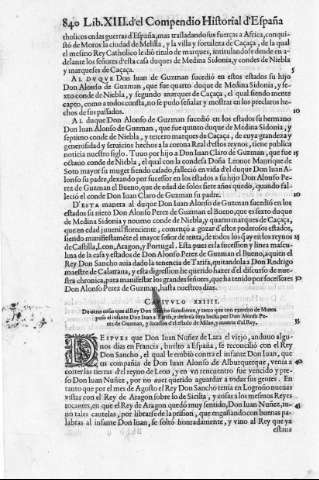 840 Lib.XIII.del Compendio Historial d'España
tholicos en las guerras de España, mas trasladando sus fuerças a Africa, conqui-
sto de Moros la ciudad de Melilla, y la villa y fortaleza de Caçaça, de la qual
el mesmo Rey Catholico le dió titulo de marques, intitulandose dende en a-
delante los señores d'esta casa duques de Medina Sidonia, y condes de Niebla
y marqueses de Caçaça.
5
AL DVQVE Don Iuan de Guzman sucedió en estos estados su hijo
Don Alonso de Guzman, que fue quarto duque de Medina Sidonia, y se-
xto conde de Niebla, y segundo marques de Caçaça, el qual siendo mente
capto, como a todos consta, no se pudo señalar y mostrar en los preclaros he-
chos de sus passados.
10
AL duque Don Alonso de Guzman sucedió en los estados su hermano
Don Iuan Alonso de Guzman, que fue quinto duque de Medina Sidonia, y
septimo conde de Niebla, y tercero marques de Caçaça, de cuya grandeza y
generosidad y seruicios hechos a la corona Real d'estos reynos, tiene publica
noticia nuestro siglo. Tuuo por hijo a Don Iuan Claro de Guzman, que fue
15
octauo conde de Niebla, el qual con la condesa Doña Leonor Manrique de
Soto mayor su muger siendo casado, falleció en vida del duque Don Iuan A-
lonso su padre, dexando por sucessor en los estados a su hijo Don Alonso Pe-
rez de Guzman el Bueno, que de edad de solos siete años quedó, quando fal-
leció el conde Don Iuan Claro de Guzman su padre.
20
D'ESTA manera al duque Don Iuan Alonso de Guzman sucedió en los
estados su nieto Don Alonso Perez de Guzman el Bueno, que es sexto duque
de Medina Sidonia y noueno conde de Niebla, y quarto marques de Caçaça,
que en edad juuenil floreciente, començó a gozar d'estos poderosos estados,
siendo manifiestamente el mayor señor de renta, de todos los que ay en los reynos
25
de Castilla, Leon, Aragon, y Portugal. Esta pues es la sucession y linea mascu-
lina de la casa y estados de Don Alonso Perez de Guzman el Bueno, a quien el
Rey Don Sancho auia dado la tenencia de Tarifa, quitandola a Don Rodrigo
maestre de Calatraua, y esta digression he querido hazer d'el discurso de nue-
stra chronica, para manifestar los grandes señores, que ha tenido por sucessores
30
Don Alonso Perez de Guzman, hasta nuestros dias.
CAPITVLO XXIIII.
35
DESPVES que Don Iuan Nuñez de Lara el viejo, anduuo algu-
nos dias en Francia, buelto a España, se reconcilió con el Rey
Don Sancho, el qual le embió contra el infante Don Iuan, que
en compañia de Don Iuan Alonso de Alburquerque, venia a
correr las tierras d'el reyno de Leon, y en vn recuentro fue vencido y pre-
so Don Iuan Nuñez, por no auer querido aguardar a todas sus gentes. En
tanto que por el mes de Agosto el Rey Don Sancho tenia en Logroño nueuas
vistas con el Rey de Aragon sobre lo de Sicilia, y cosas a los mesmos Reyes
tocantes, en que el Rey de Aragon quedó muy sentido, Don Iuan Nuñez, mo-
uió tales cautelas, por librarse de la prision, que engañando con buenas pa-
labras al infante Don Iuan, se soltó honradamente, y vino al Rey que ya
estaua